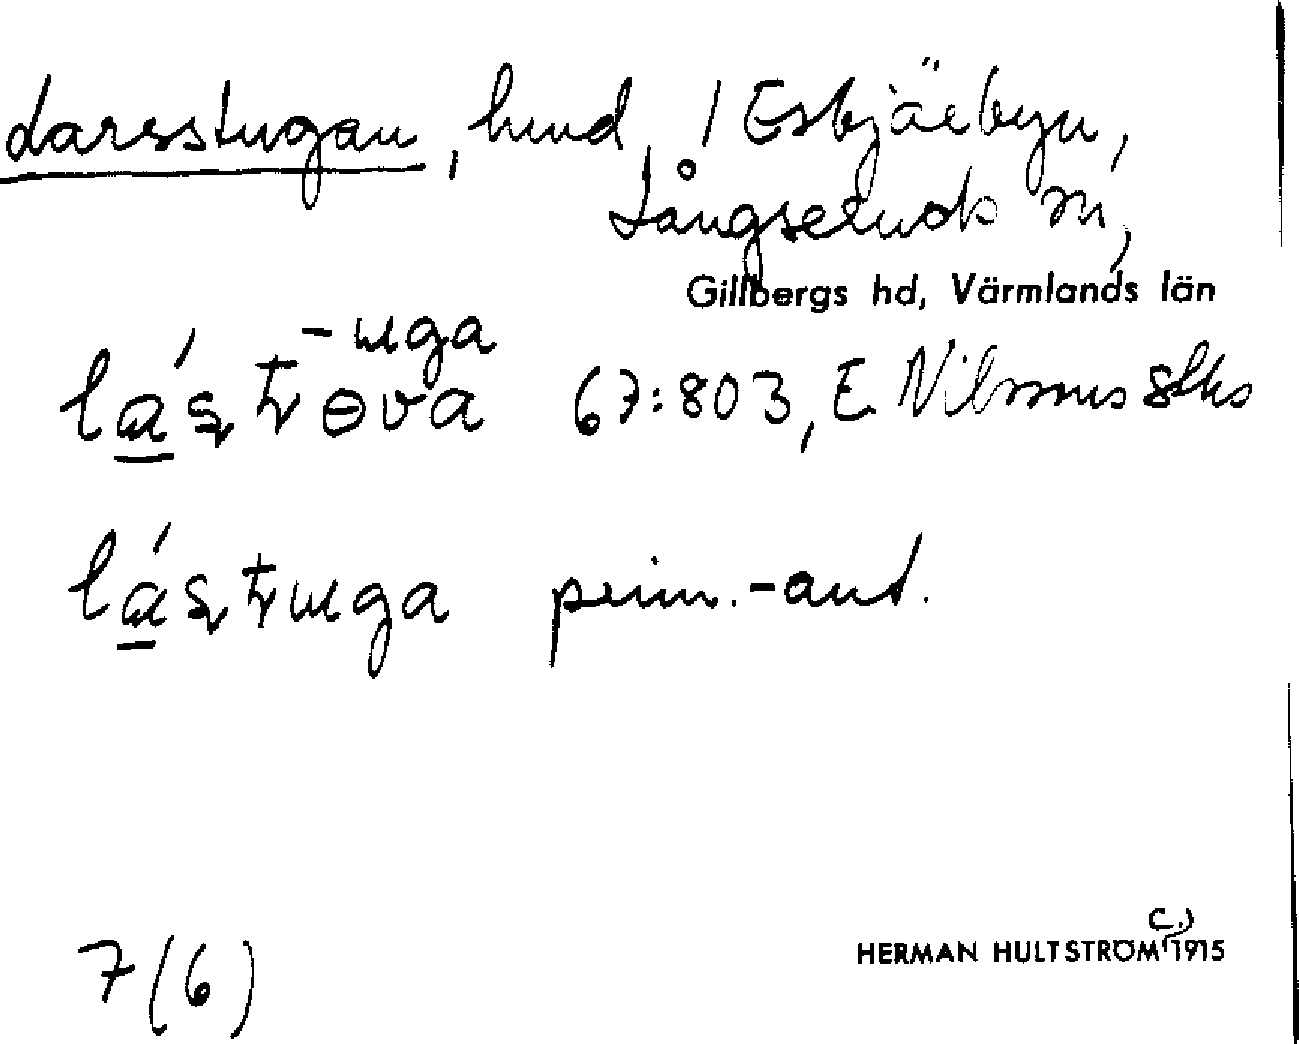 Larsstugan, hmd, i Esbjörbyn,
Långseruds sn,
Gillbergs hd, Värmlands län
-uga
lásstova 67:803, E. Nilssons stks
lásstuga prim.-ant.
7(6)
HERMAN HULTSTRÖM (c.) 1915